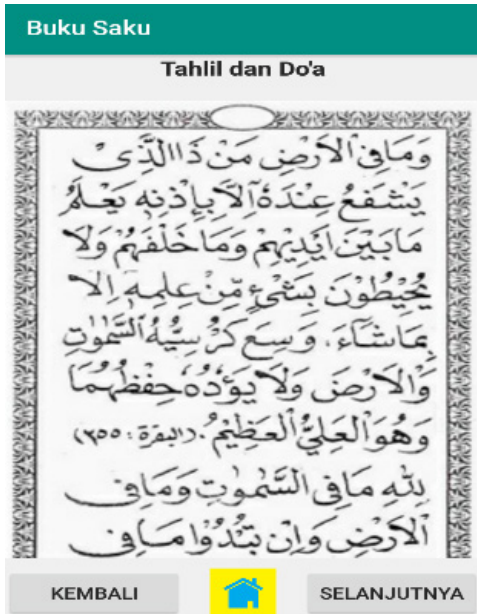 Buku Saku
Tahlil dan Do'a
وَمَا فِى الْاَرْضِ مَنْ ذَا الَّذِىْ
يَشْفَعُ عِنْدَهٗ اِلَّا بِاِذْنِهٖ يَعْلَمُ
مَابَيْنَ اَيْدِيْهِمْ وَمَا خَلْفَهُمْ وَلَا
يُحِيْطُوْنَ بِشَىْءٍ مِّنْ عِلْمِهٖ اِلَّا
بِمَاشَآءَ. وَسِعَ كُرْسِيُّهُ السَّمٰوٰتِ
وَالْاَرْضَ وَلَا يَؤُدُهٗ حِفْظُهُمَا
وَهُوَ الْعَلِيُّ الْعَظِيْمُ. (البقرة : ٢٥٥)
لِلّٰهِ مَا فِى السَّمٰوٰتِ وَمَا فِى
الْاَرْضِ وَاِنْ تُبْدُوْا مَا فِى
KEMBALI
SELANJUTNYA